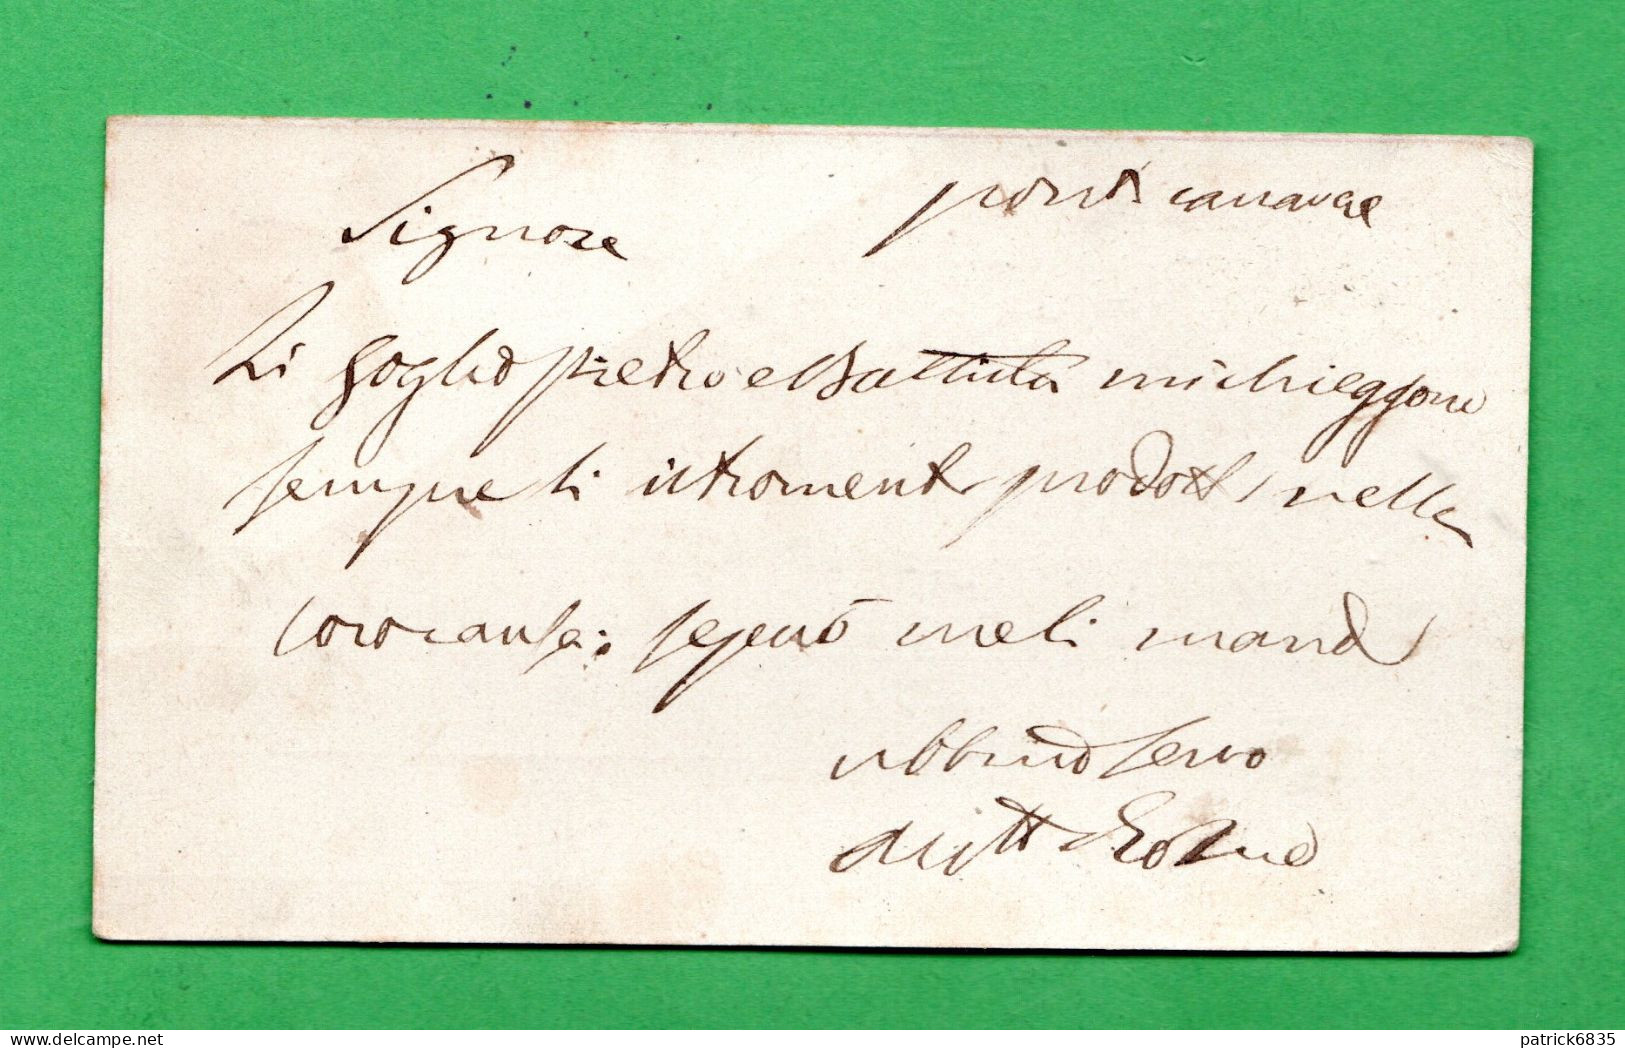 Signore pont canavae
Li goglio pietro e Battista mi chieggono
sempre li istromenti prodotti nella
loro causa; se può me li mandi
servo
patrick6835